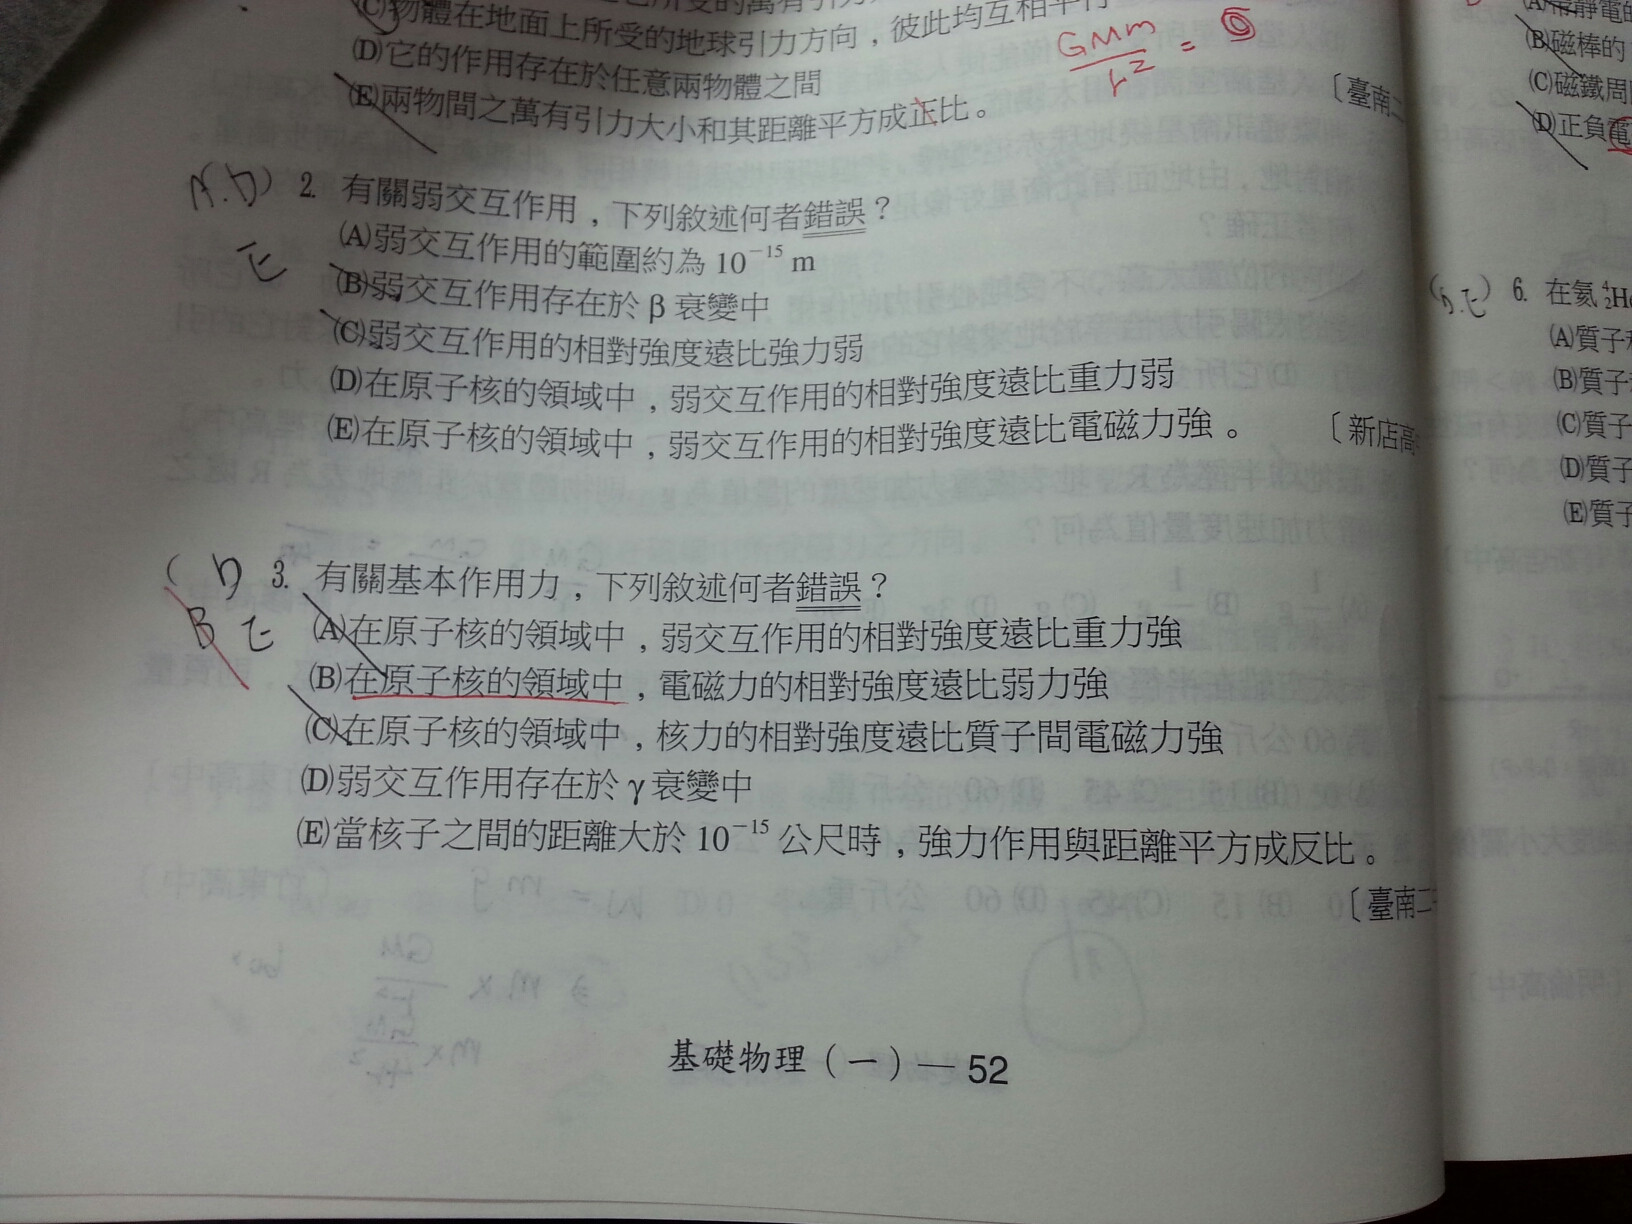 (C)物體在地面上所受的地球引力方向，彼此均互相平行
(D)它的作用存在於任意兩物體之間
(E)兩物間之萬有引力大小和其距離平方成正比。
GMm
r²
=
〔臺南二
(A.D) 2. 有關弱交互作用，下列敘述何者錯誤？
E
(A)弱交互作用的範圍約為 10⁻¹⁵ m
(B)弱交互作用存在於 β 衰變中
(C)弱交互作用的相對強度遠比強力弱
(D)在原子核的領域中，弱交互作用的相對強度遠比重力弱
(E)在原子核的領域中，弱交互作用的相對強度遠比電磁力強。
〔新店高
( D 3. 有關基本作用力，下列敘述何者錯誤？
B E
(A)在原子核的領域中，弱交互作用的相對強度遠比重力強
(B)在原子核的領域中，電磁力的相對強度遠比弱力強
(C)在原子核的領域中，核力的相對強度遠比質子間電磁力強
(D)弱交互作用存在於 γ 衰變中
(E)當核子之間的距離大於 10⁻¹⁵ 公尺時，強力作用與距離平方成反比。
〔臺南二
基礎物理（一）— 52
(B)磁棒的
(C)磁鐵周
(D)正負電
(D.E) 6. 在氦 ⁴₂He
(A)質子
(B)質子
(C)質子
(D)質子
(E)質子